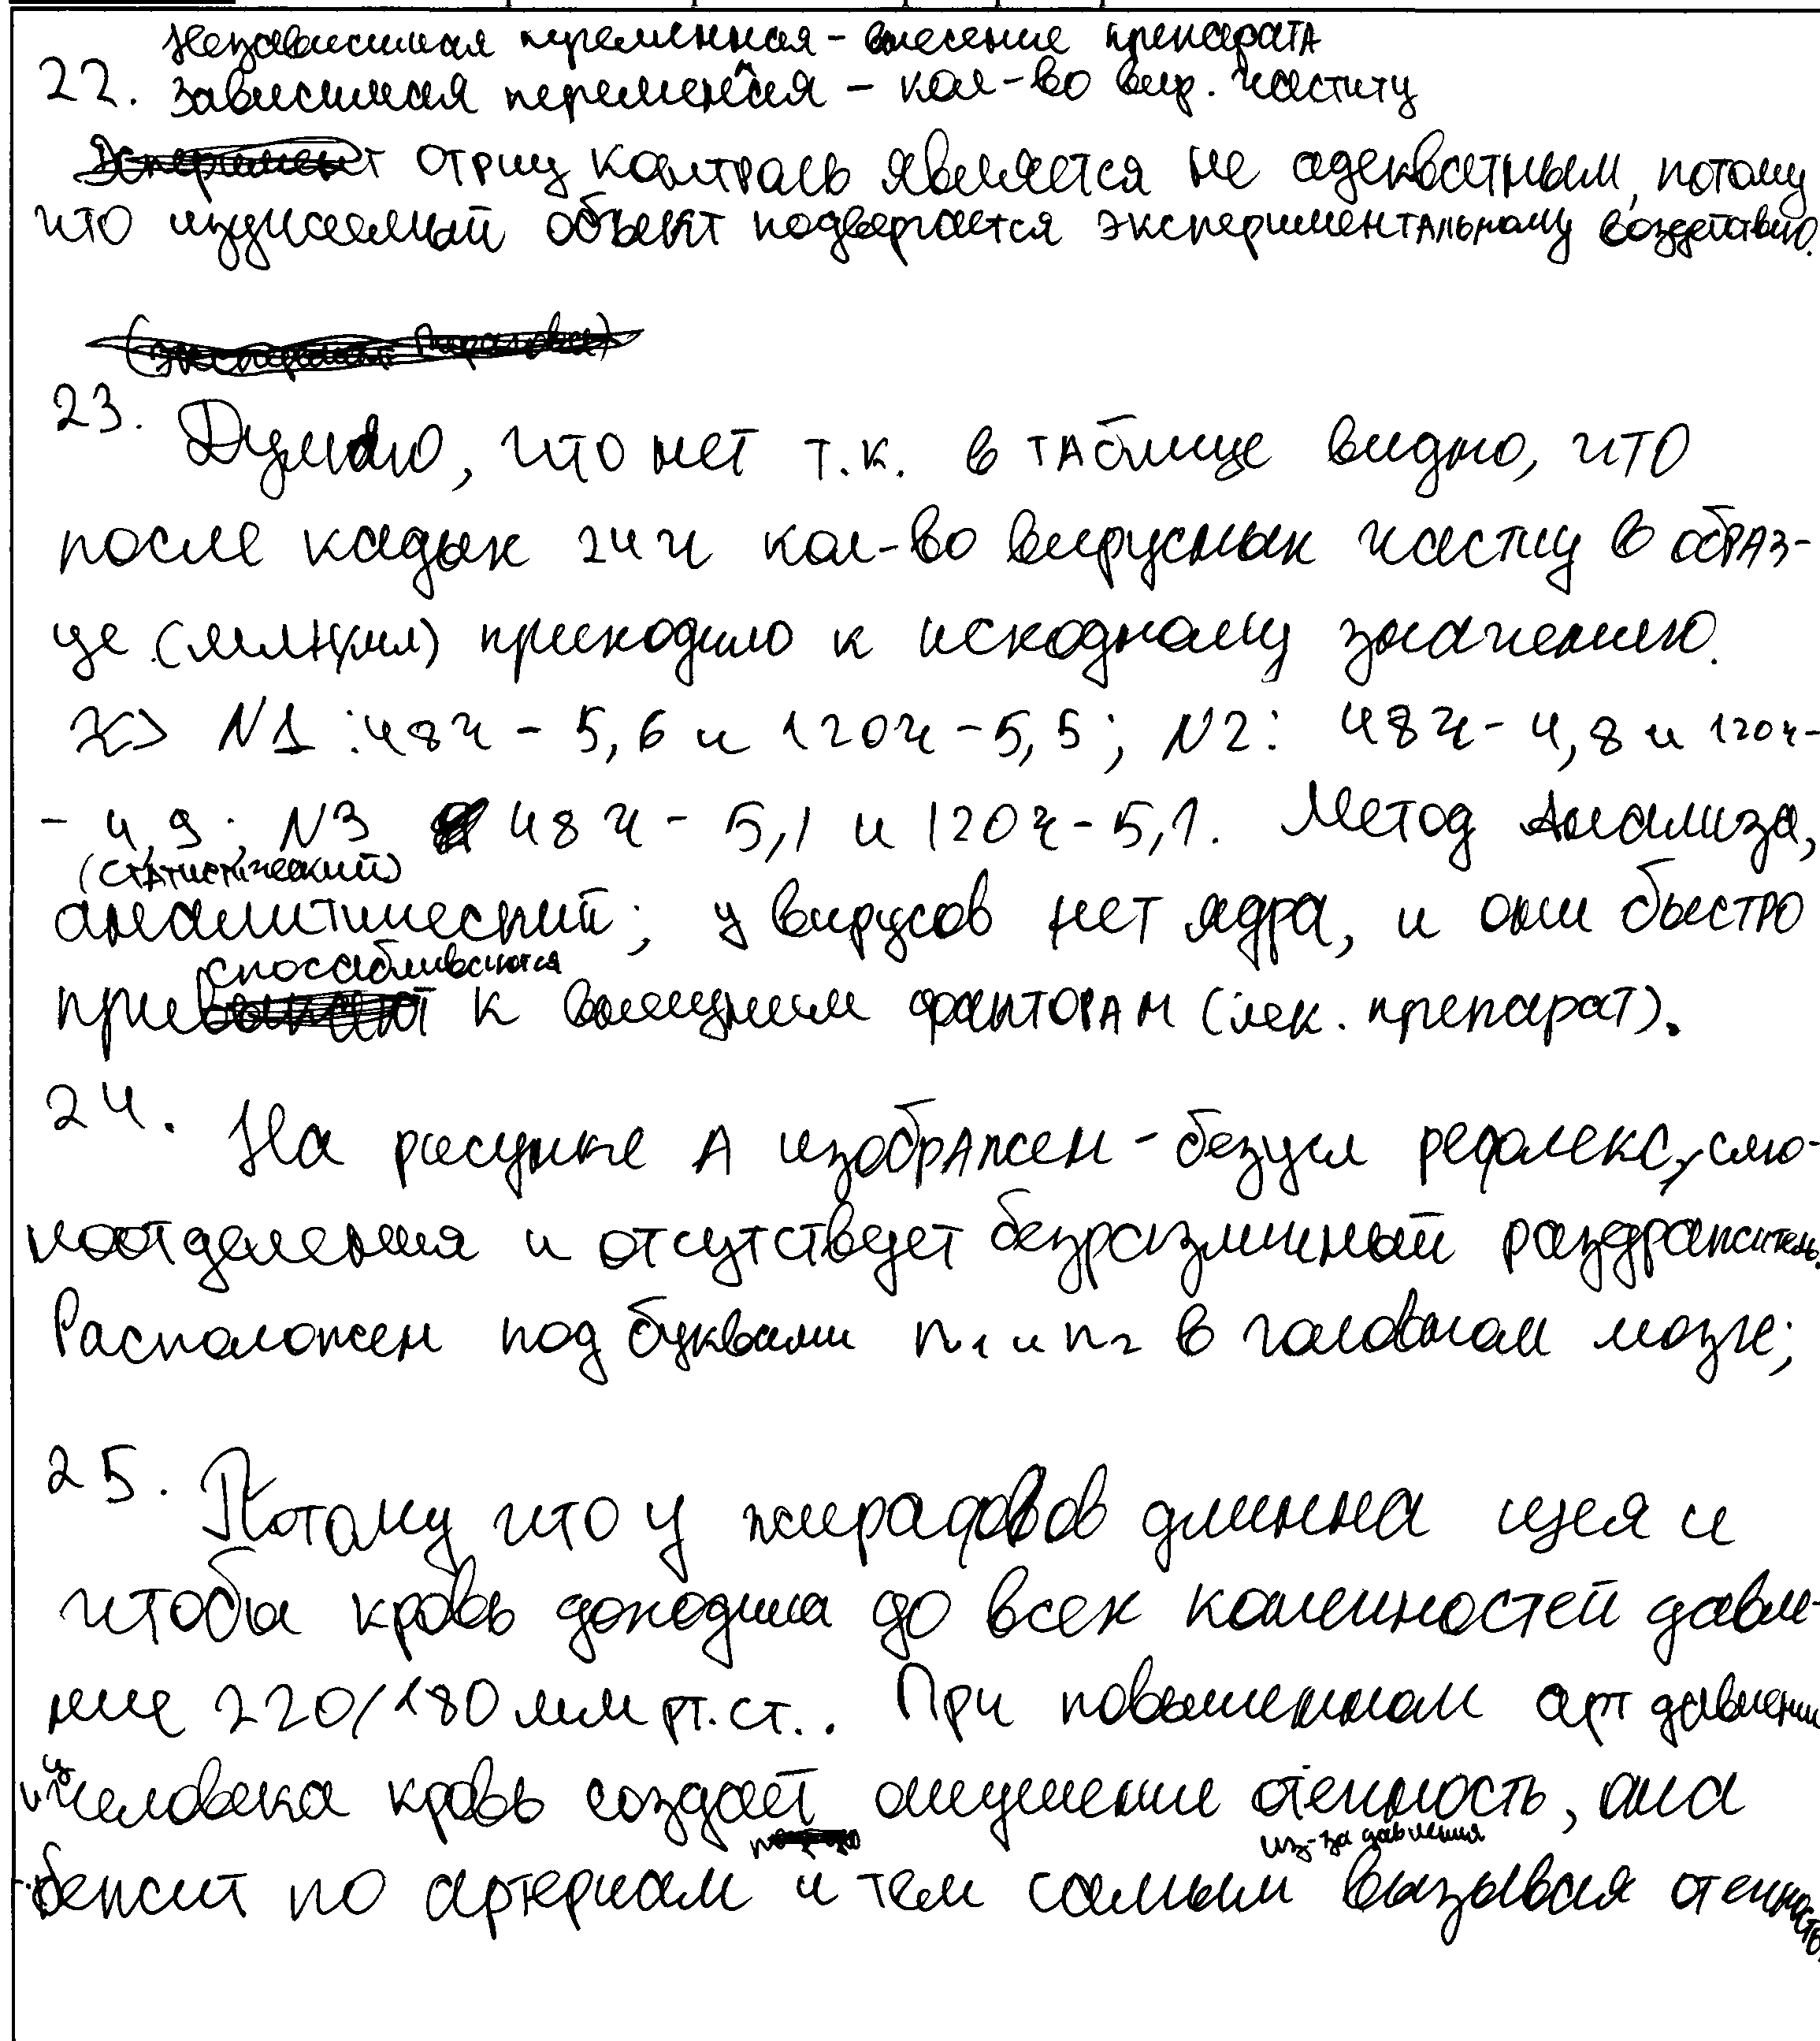 Независимая переменная - внесение препарата
22. Зависимая переменная - кол-во вир. частиц
отриц контроль является не адекватным, потому
что изучаемый объект подвергается экспериментальному воздействию.
23. Думаю, что нет т.к. в таблице видно, что
после каждых 24 ч кол-во вирусных частиц в образ-
це (млн/мл) приходило к исходному значению.
№1: 48ч - 5,6 и 120ч - 5,5; №2: 48ч - 4,8 и 120ч -
- 4,9; №3 48ч - 5,1 и 120ч - 5,1. Метод Анализа,
(статистический)
аналитический; у вирусов нет ядра, и они быстро
приспосабливаются к внешним факторам (лек. препарат).
24. На рисунке А изображен - безусл рефлекс, слю-
ноотделения и отсутствует безразличный раздражитель.
Расположен под буквами п1 и п2 в головном мозге;
25. Потому что у жирафов длинна шея и
чтобы кровь доходила до всех конечностей давле-
ние 220/180 мм рт.ст.. При повышенном арт давлении
и у человека кровь создаёт отечность, она
из-за давления
бежит по артериям и тем самым вызывая отечность.